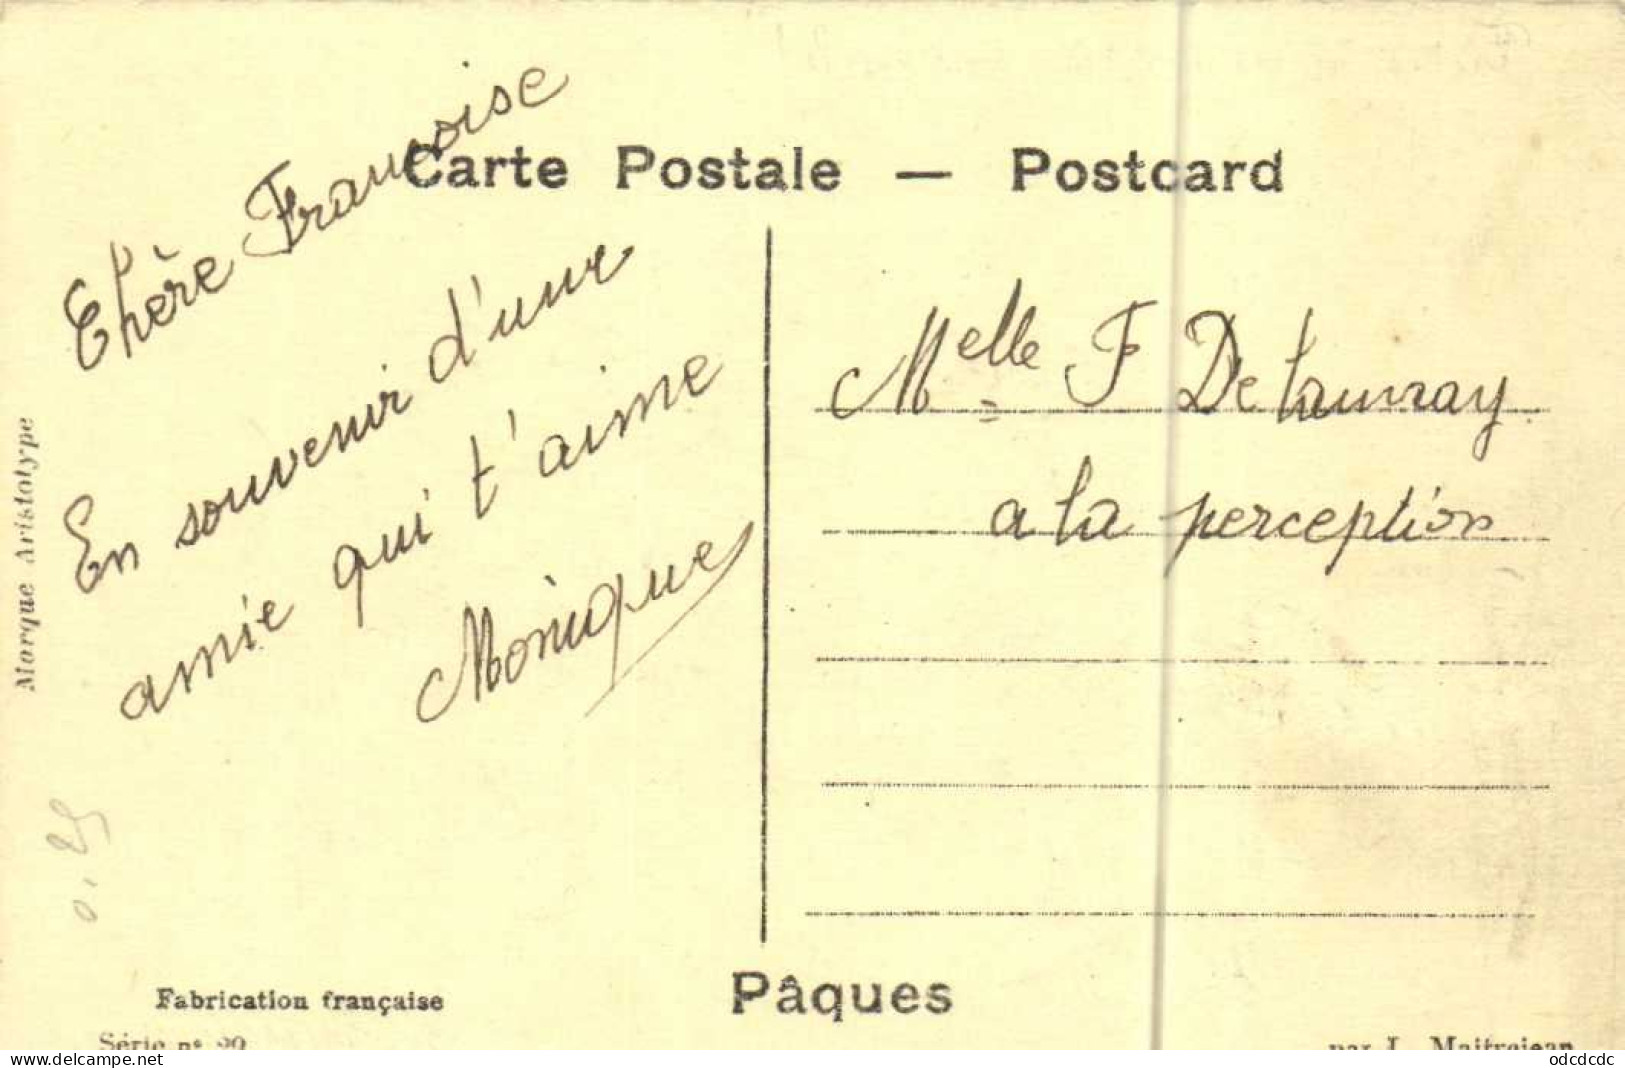 Carte Postale — Postcard
Chère Françoise
En souvenir d'une
amie qui t'aime
Monique
Melle F Delaunay
a la perception
Marque Aristotype
0,25
Pâques
Fabrication française
Série n° 90
par L. Maitrejean
delcampe.net
odcdcdc